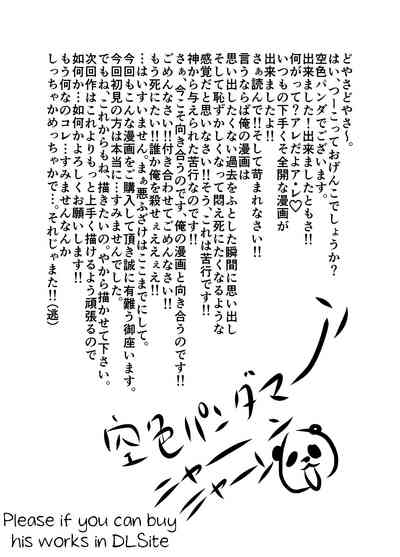 どやさどやさ~。
はい、つーこっておげんこでしょうか?
空色パンダでございます。
出来ました?出来ましたともさ!!
何がって?アレだよア・レ♡
いつもの下手くそ全開な漫画が
出来ましたよ!!
さぁ読んで!!そして苛まれなさい!!
言うならば俺の漫画は
思い出したくない過去をふとした瞬間に思い出し
そして恥ずかしくなって悶え死にたくなるような
感覚だと思いなさい!!そう、これは苦行です!!
神から与えられた苦行なのです!!
さぁ、今こそ向き合うのです、俺の漫画と向き合うのです!!
ごめんなさい!!付き合わせてごめんなさい!!
もう死にたい!!誰か俺を殺せぇえぇえ!!
…はいすいません。まぁ悪ふざけはここまでにして。
今回もこんな漫画をご購入して頂き誠に有難う御座います。
今回初見の方は本当に…すみませんでした。
でもね、これからもね、描きたいの。やから描かせて下さい。
次回作はこれよりもっと上手く描けるよう頑張るので
如何か…如何かよろしくお願いします!!
もう何なのコレ…すみませんなんか
しっちゃかめっちゃかで…。それじゃまた!!(逃)
空色パンダマーン
ニャーン
ニャーン
Please if you can buy
his works in DLSite